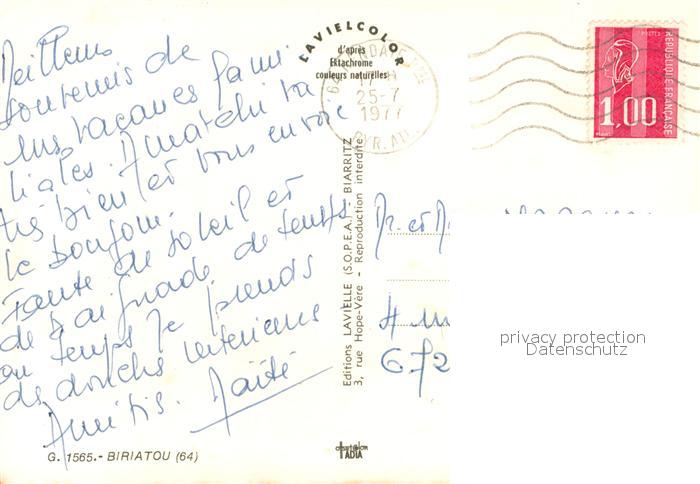 Meilleurs
souvenirs de
nos vacances fami
liales. Amatchi va
très bien et vous envoie
le bonjour.
Faute de soleil et
de baignade de temps
en temps je prends
des douches
Amitiés. Maïté
G. 1565.- BIRIATOU (64)
LAVIELCOLOR
d'après
Ektachrome
couleurs naturelles
Editions LAVIELLE (S.O.P.E.A.) BIARRITZ
3, rue Hope-Vère - Reproduction interdite
64
25-7
1977
PYR. ATL.
POSTES
REPUBLIQUE FRANÇAISE
1,00
Mr. et M
672
privacy protection
Datenschutz